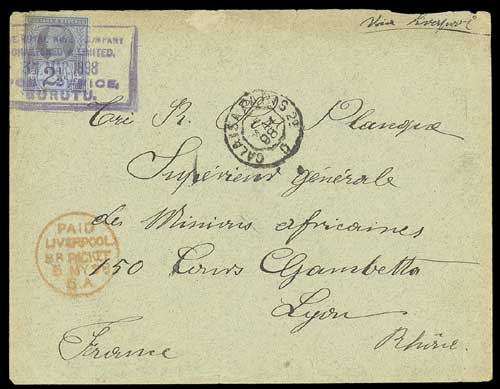 Via Liverpool
THE ROYAL NIGER COMPANY
CHARTERED & LIMITED,
1898
POST OFFICE,
BURUTU.
2½
CALAIS A PARIS 2º
98
Très R. P. Planque
Supérieur générale
des Missions africaines
150 Cours Gambetta
Lyon
Rhône
France
PAID
LIVERPOOL
B.R. PACKET
5 MY 98
5 A